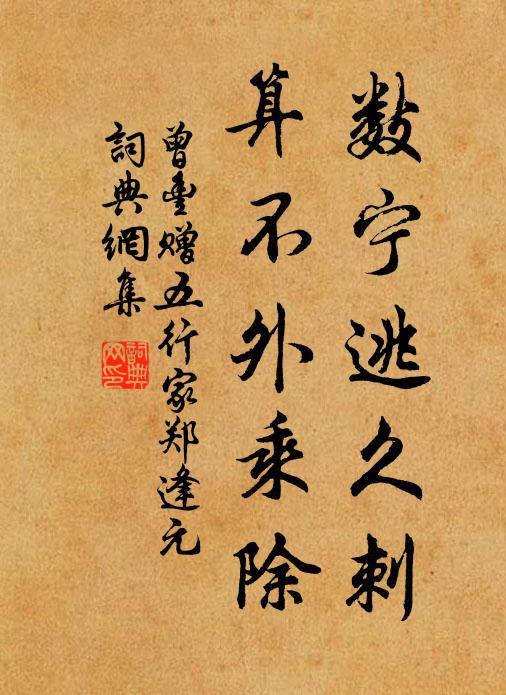 数宁逃久剌
算不外乘除
曾丰赠五行家郑逢元
詞典網集
詞典網印